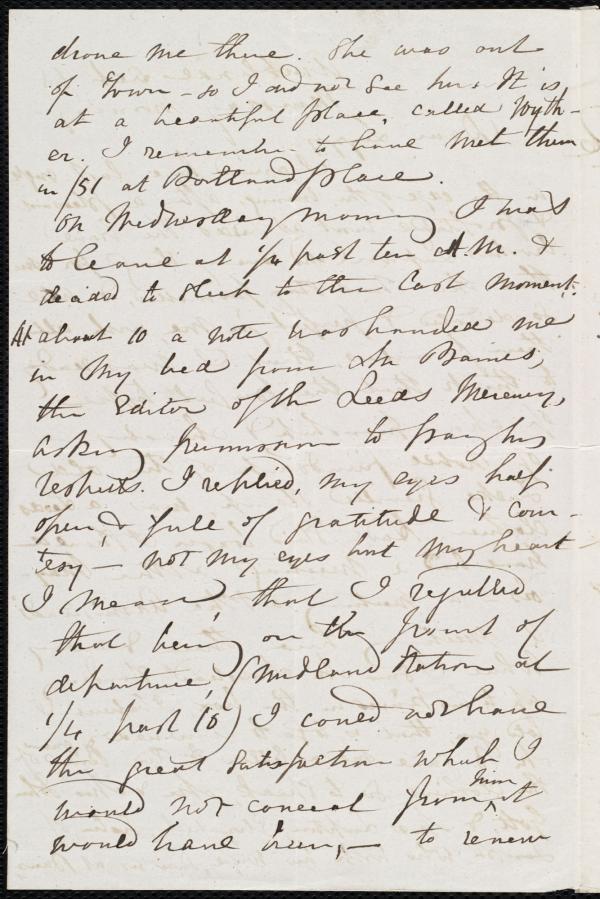 drove me there. She was out
of Town – so I did not see her. It is
at a beautiful place, called Wyth-
er. I remember to have met them
in /51 at Portland place.
On Wednesday morning I was
to leave at 1/4 past ten A.M. &
decided to stick to the last moment.
At about 10 a note was handed me
in my bed from Mr Baines,
the Editor of the Leeds Mercury,
asking permission to pay his
respects. I replied, my eyes half
open, & full of gratitude & cour-
tesy – not my eyes but my heart
I mean, that I regretted
that being on the point of
departure, (Midland Station at
1/4 past 10) I could not have
the great satisfaction what I
would not conceal from him it
would have been, – to renew